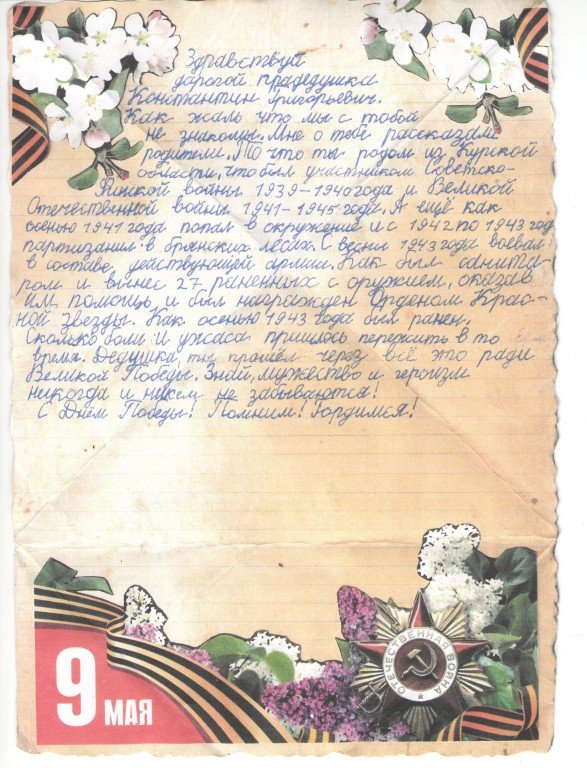 Здравствуй
дорогой прадедушка
Константин Григорьевич.
Как жаль что мы с тобой
не знакомы. Мне о тебе рассказали
родители. То что ты родом из Курской
области, что был участником Советско-
Финской войны 1939-1940 года и Великой
Отечественной войны 1941-1945 года. А ещё как
осенью 1941 года попал в окружение и с 1942 по 1943 год
партизанил в брянских лесах. С весны 1943 года воевал
в составе действующей армии. Как был санита-
ром и вынес 27 раненных с оружием, оказав
им помощь и был награжден Орденом Крас-
ной звезды. Как осенью 1943 года был ранен.
Сколько боли и ужаса пришлось пережить в то
время. Дедушка, ты прошёл через всё это ради
Великой Победы. Знай, мужество и героизм
никогда и никем не забываются!
С Днём Победы! Помним! Гордимся!
ОТЕЧЕСТВЕННАЯ ВОЙНА
9 МАЯ